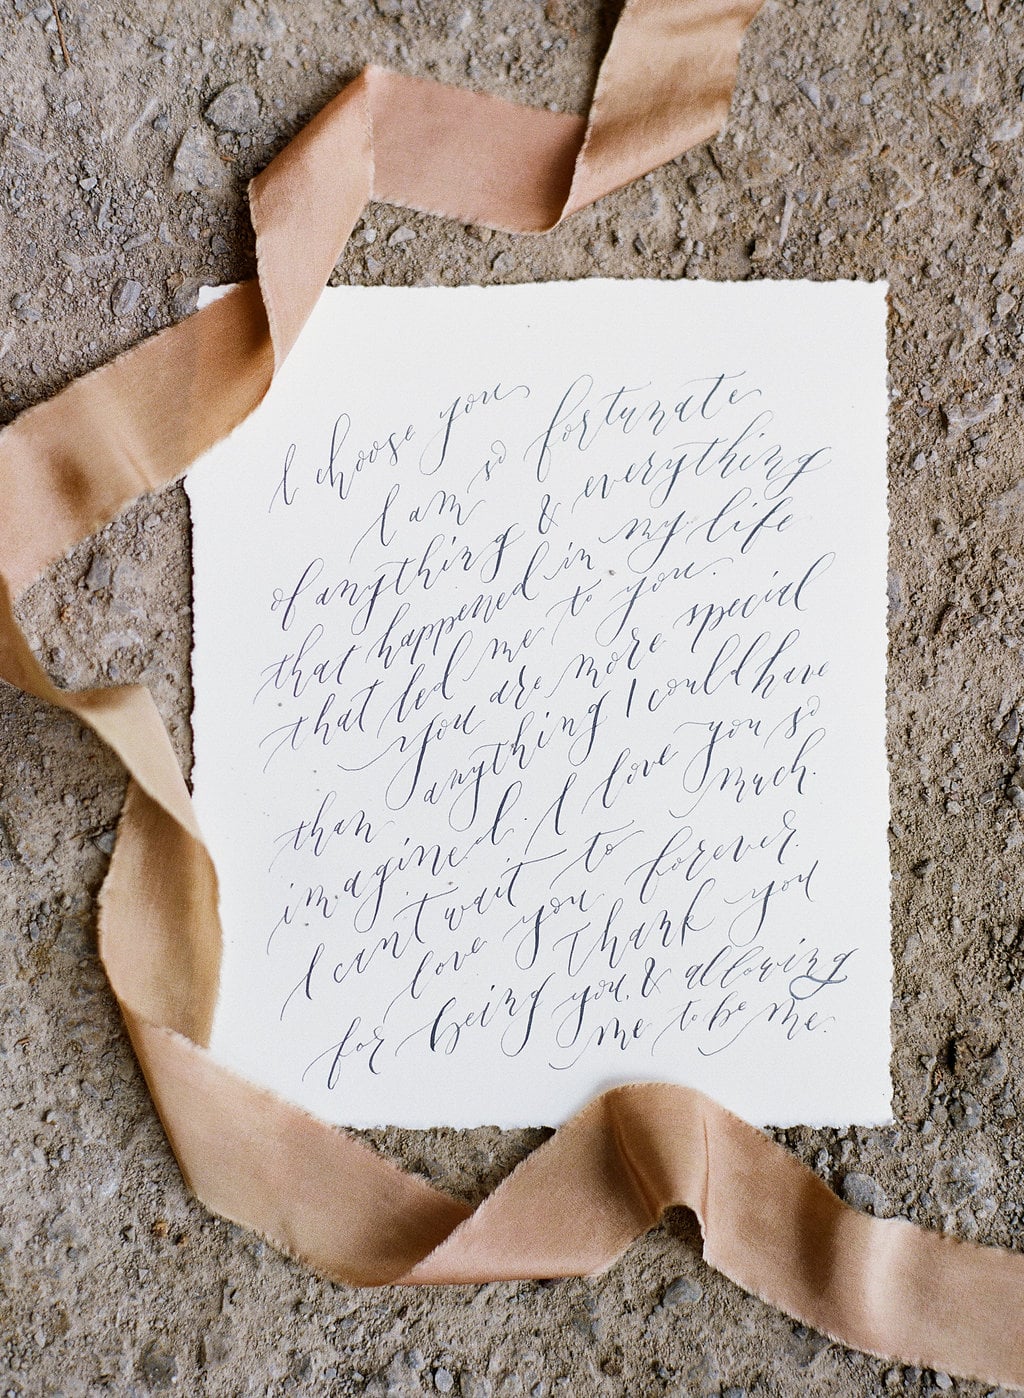 I choose you
I am so fortunate
of anything & everything
that happened in my life
that led me to you.
you are more special
than anything I could have
imagined. I love you so
much.
I can't wait to
love you forever.
Thank you
for being you, & allowing
me to be me.